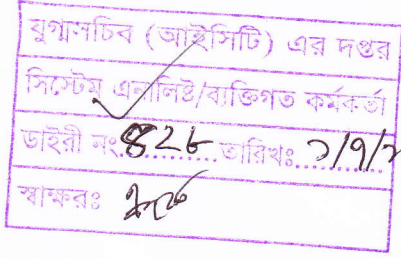 যুগ্মসচিব (আইসিটি) এর দপ্তর
সিস্টেম এনালিষ্ট/ব্যক্তিগত কর্মকর্তা
ডাইরী নং ৪২৮ তারিখঃ ১/৭/
স্বাক্ষরঃ